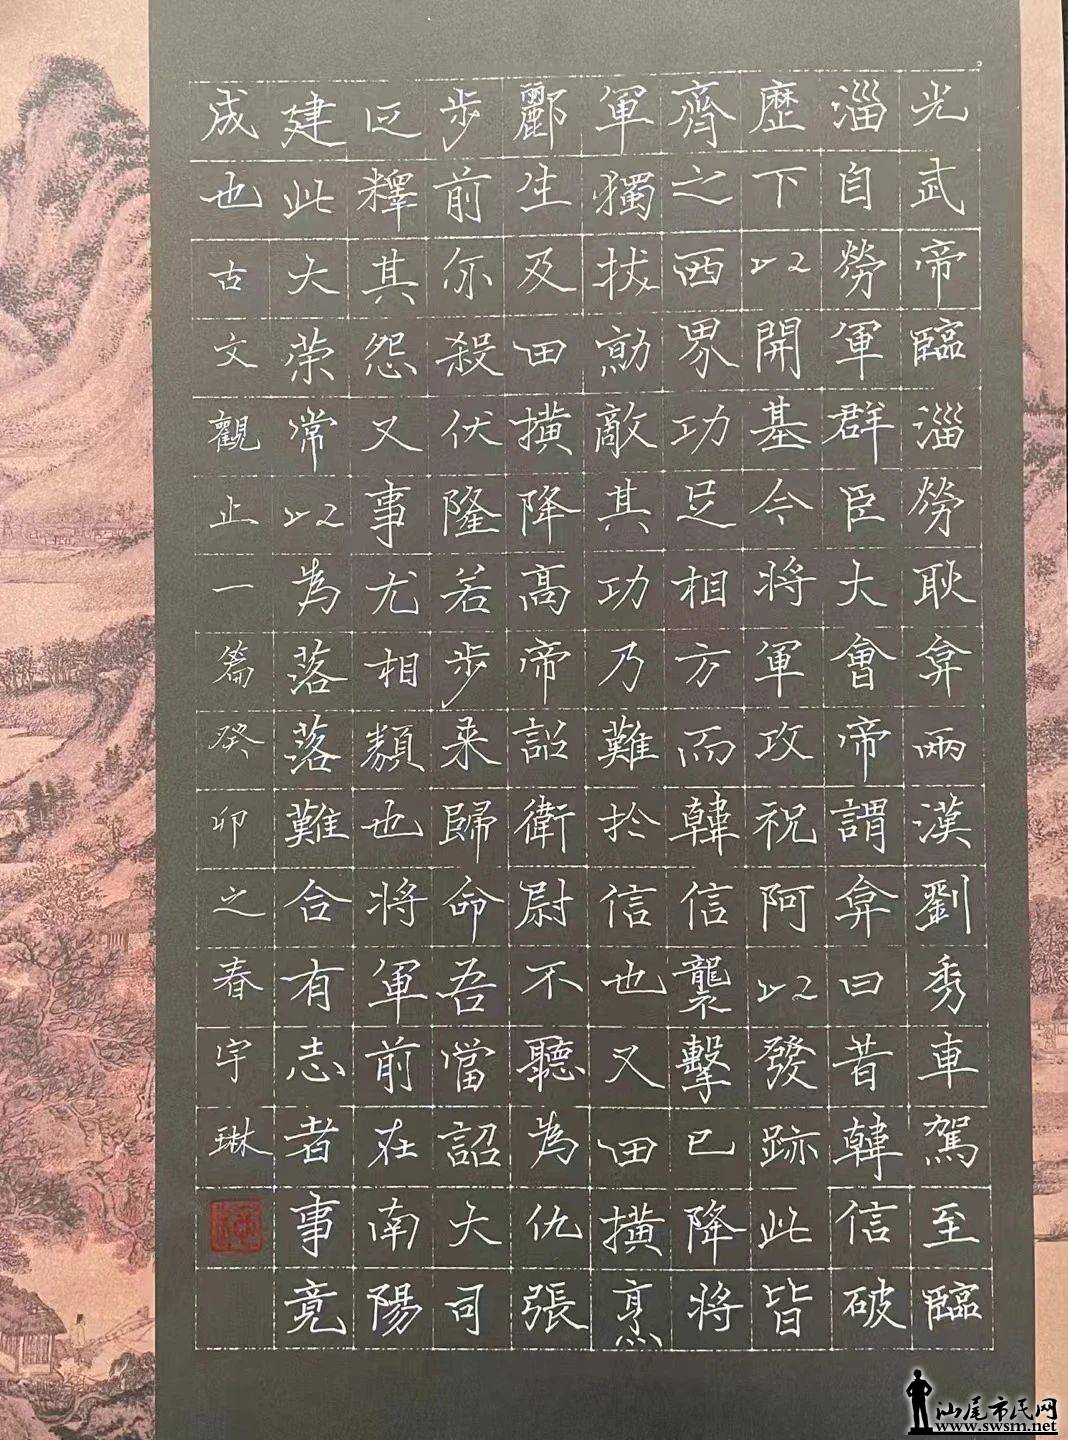 光武帝臨淄勞耿弇兩漢劉秀車駕至臨
淄自勞軍群臣大會帝謂弇曰昔韓信破
歷下以開基今将軍攻祝阿以發跡此皆
齊之西界功足相方而韓信襲擊已降将
軍獨拔勍敵其功乃難於信也又田横烹
酈生及田横降高帝詔衛尉不聽為仇張
步前亦殺伏隆若步来歸命吾當詔大司
徒釋其怨又事尤相類也将軍前在南陽
建此大策常以為落落難合有志者事竟
成也古文觀止一篇癸卯之春宇琳
汕尾市民网
www.swsm.net